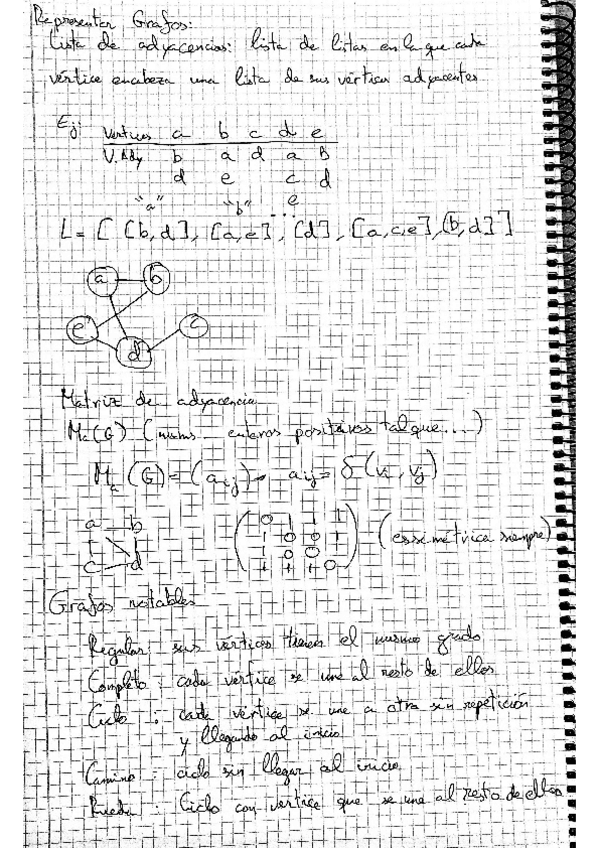 Representar Grafos:
Lista de adyacencias: lista de listas en la que cada
vértice encabeza una lista de sus vértices adyacentes
Ej: Vertices a b c d e
V. Ady b a d a B
d e c d
e
"a" "b" ...
L = [ [b,d], [a,e], [d], [a,c,e], [b,d] ]
a b
e c
d
Matriz de adyacencia
Ma(G) (nxns enteros positivos tal que...)
Ma(G) = (aij) aij = δ(vi, vj)
a b
c d
0 1 1 1
1 0 0 1
1 0 0 1
1 1 1 0
(es simétrica siempre)
Grafos notables
Regular: sus vértices tienen el mismo grado
Completo: cada vértice se une al resto de ellos
Ciclo: cada vértice se une a otra sin repetición
y llegando al inicio
Camino: ciclo sin llegar al inicio
Rueda: Ciclo con vertice que se une al resto de ellos